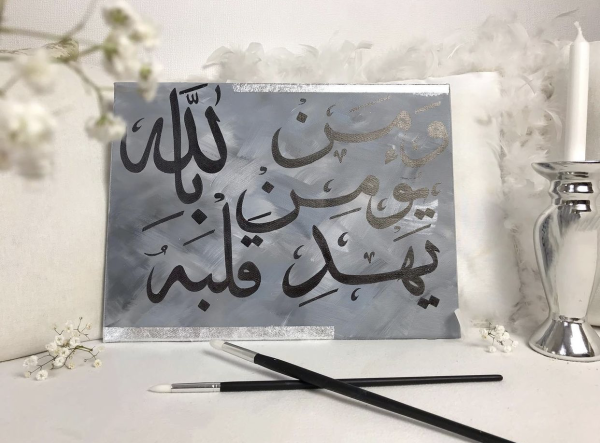 وَمَن
يُومِن بِاللَّه
يَهدِ قَلبَهُ